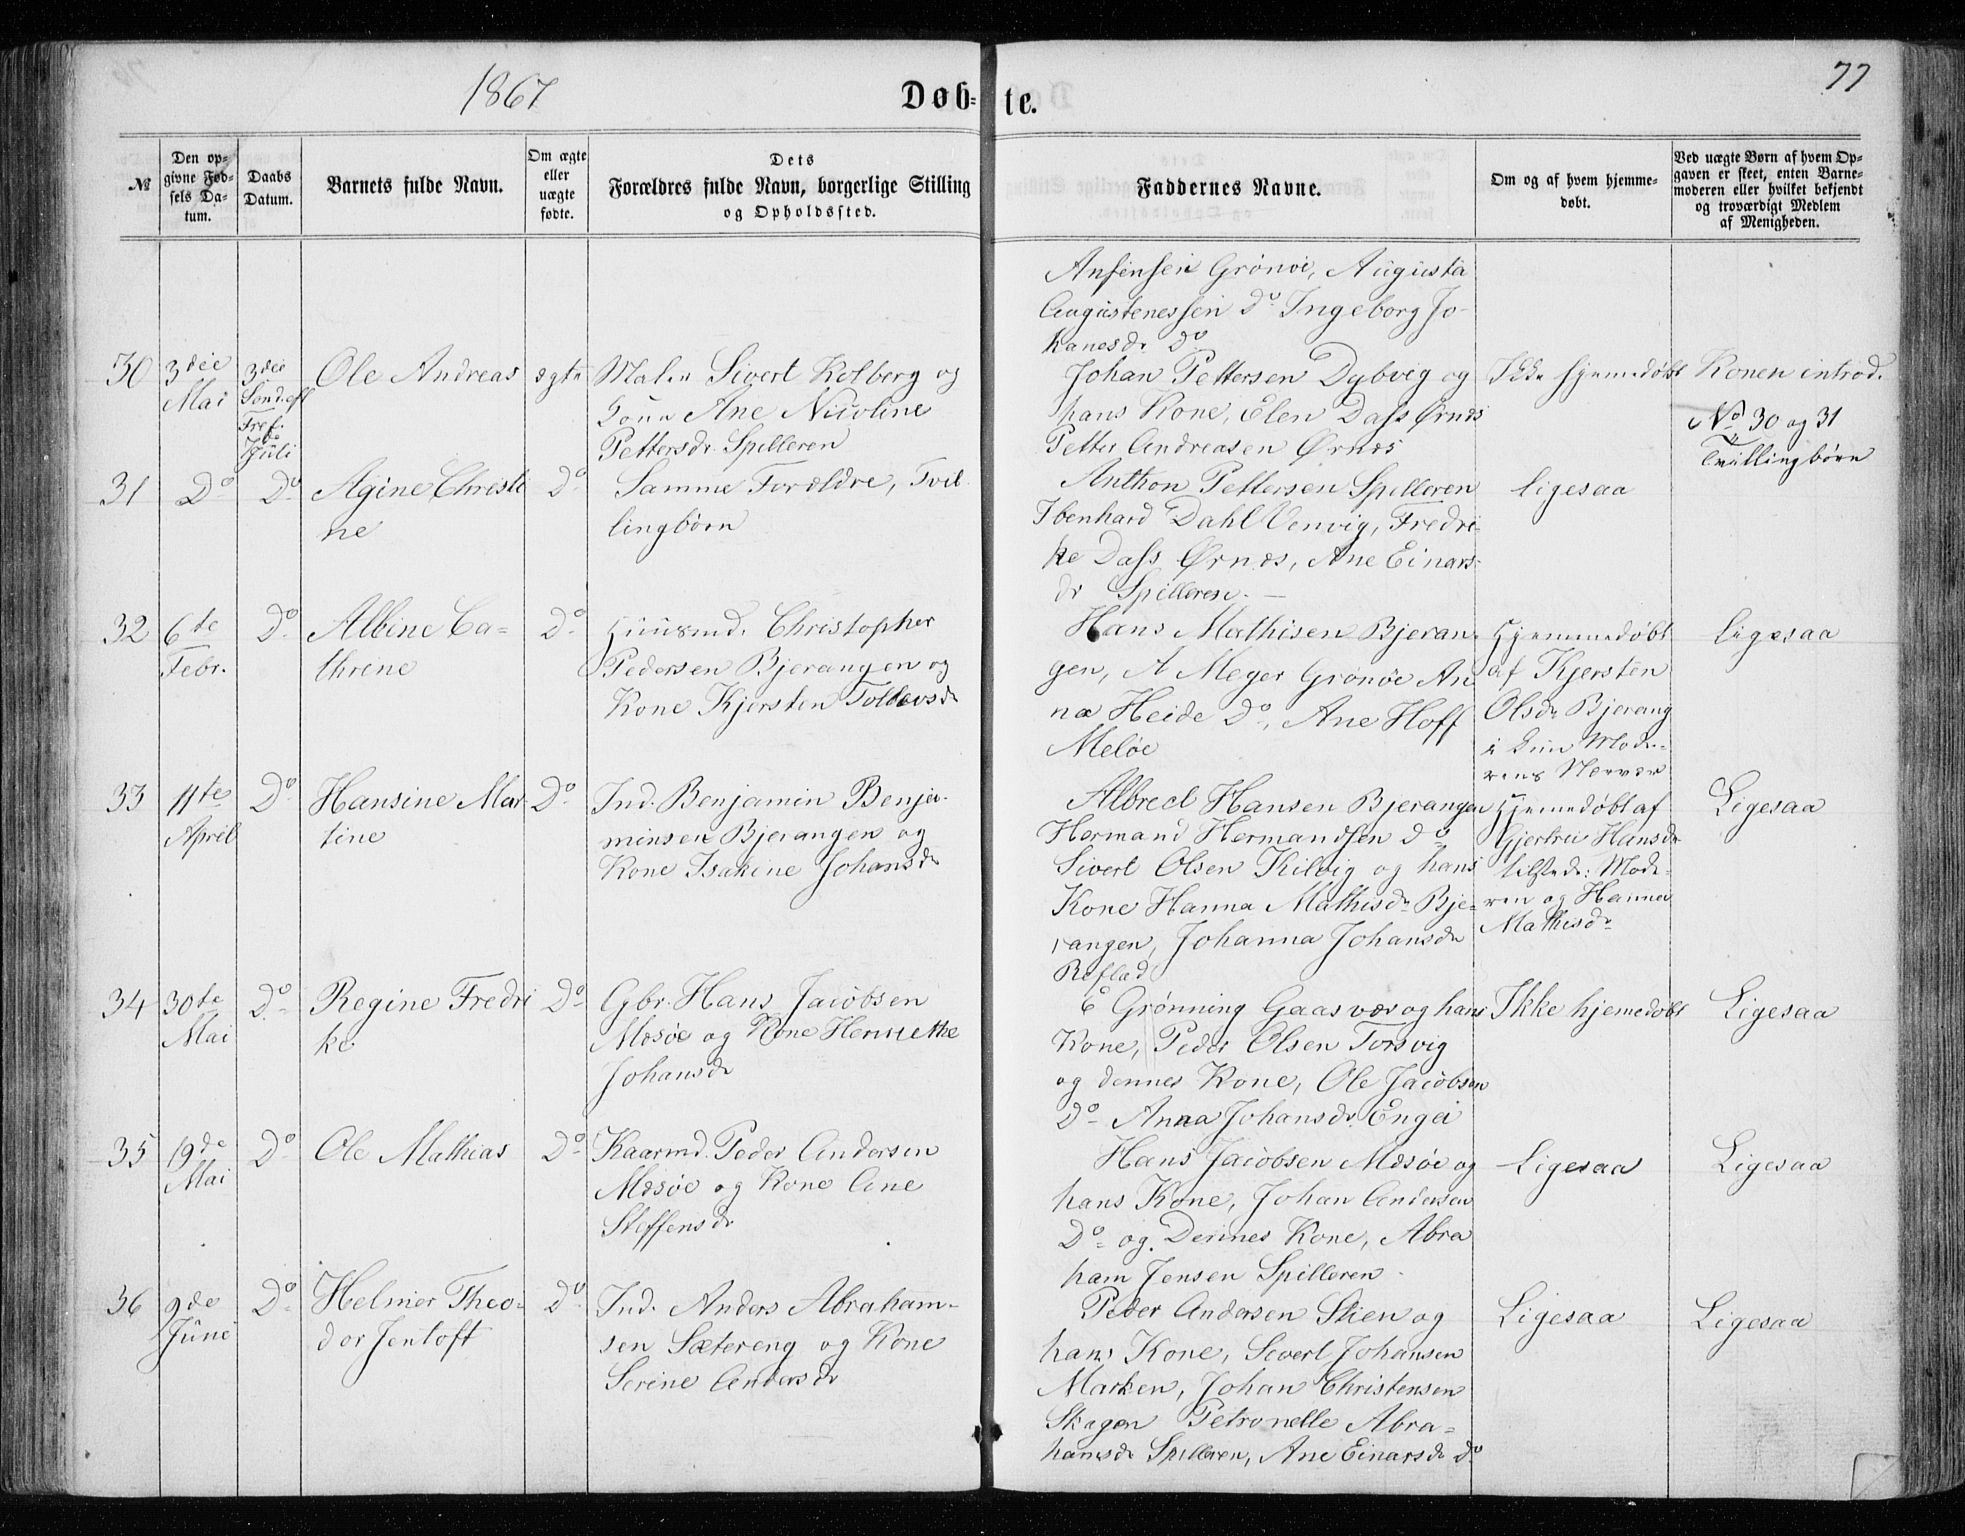 1867
Døb-
te.
77
№
Den op-
givne Fød-
sels Da-
tum.
Daabs
Datum.
Barnets fulde Navn.
Om ægte
eller
uægte
fødte.
Dets
Forældres fulde Navn, borgerlige Stilling
og Opholdssted.
Faddernes Navne.
Om og af hvem hjemme-
døbt.
Ved uægte Børn af hvem Op-
gaven er skeet, enten Barne-
moderen eller hvilket bekjendt
og troværdigt Medlem
af Menigheden.
Ansensen Grønøe, Augusta
Augustenessen Do Ingeborg Jo-
hanesdr Do
30
3die
Mai
3die
Sond. eft
Tref.
Juli
Ole Andreas
ægte
Maler Sivert Kolberg og
Kone Ane Nicoline
Pettersdr Spilleren
Johan Pettersen Dybvig og
hans Kone, Elen Dass Ørnæs
Petter Andreasen Ørnæs
Ikke hjemedøbt
Konen introd.
No 30 og 31
Tvillingbørn
31
Do
Do
Agine Christi
ne
Do
Samme Forældre, Tvil
lingbørn
Anthon Pettersen Spilleren
Ibenhard Dahl Venvig, Fredri-
ke Dass Ørnæs, Ane Einars-
dr Spilleren. —
Ligesaa
32
6te
Febr.
Do
Albine Ca-
thrine
Do
Huusmd. Christopher
Pedersen Bjerangen og
Kone Kjersten Tollevsdr
Hans Mathisen Bjeran-
gen, A Meyer Grønøe An
na Heide Do, Ane Hoff
Meløe
Hjemmedøbt
af Kjersten
Olsdr Bjerang
i Mode-
rens Nærvær
Ligesaa
33
11te
April
Do
Hansine Mar
tine
Do
Ind. Benjamin Benja-
minsen Bjerangen og
Kone Isakine Johansdr
Albrecl Hansen Bjerangen
Hermand Hermandsen do
Sivert Olsen Kilvig og hans
Kone Hanna Mathisdr Bje-
rangen, Johanna Johansdr
Reflad
Hjemedøbt af
Gjertrui Hansdr
tilstede: Mode-
ren og Hanna
Mathisdr
Ligesaa
34
30te
Mai
Do
Regine Fredri
ke
Do
Gbr. Hans Jacobsen
Mesøe og Kone Henriethe
Johansdr
E Grønning Gaasvær og hans
Kone, Peder Olsen Torsvig
og dennes Kone, Ole Jacobsen
Do Anna Johansdr Engei
Ikke hjemedøbt
Ligesaa
35
19de
Mai
Do
Ole Mathias
Do
Kaarmd. Peder Andersen
Mesøe og Kone Ane
Steffensdr
Hans Jacobsen Mesøe og
hans Kone, Johan Andersen
Do og Dennes Kone, Abra
ham Jensen Spilleren
Ligesaa
Ligesaa
36
9de
June
Do
Helmer Theo-
dor Jentoft
Do
Ind. Anders Abraham-
sen Sætereng og Kone
Serine Andersdr
Peder Andersen Stien og
hans Kone, Sivert Johansen
Marken, Johan Christensen
Skagen Petronelle Abra-
hamsdr Spilleren, Ane Einarsdr Do
Ligesaa
Ligesaa